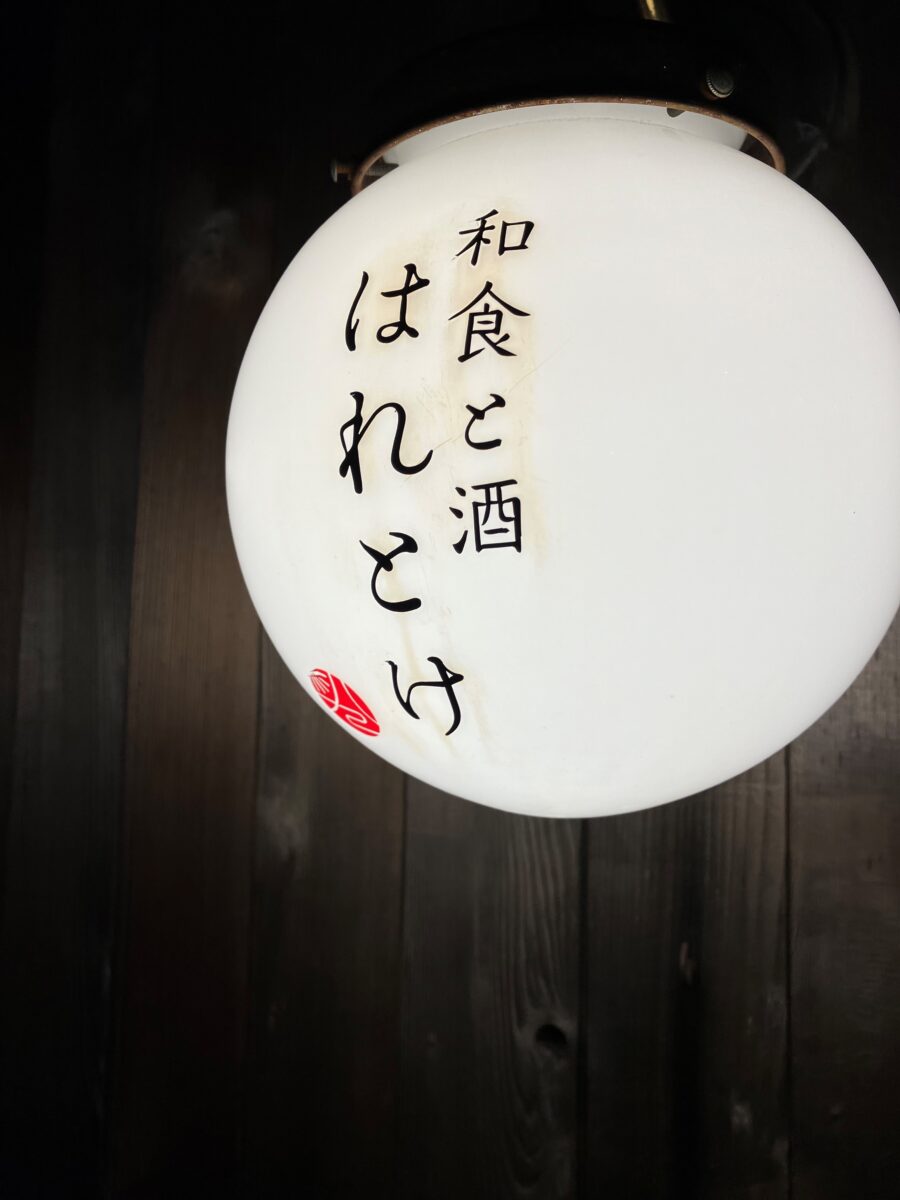 和食と酒
はれとけ